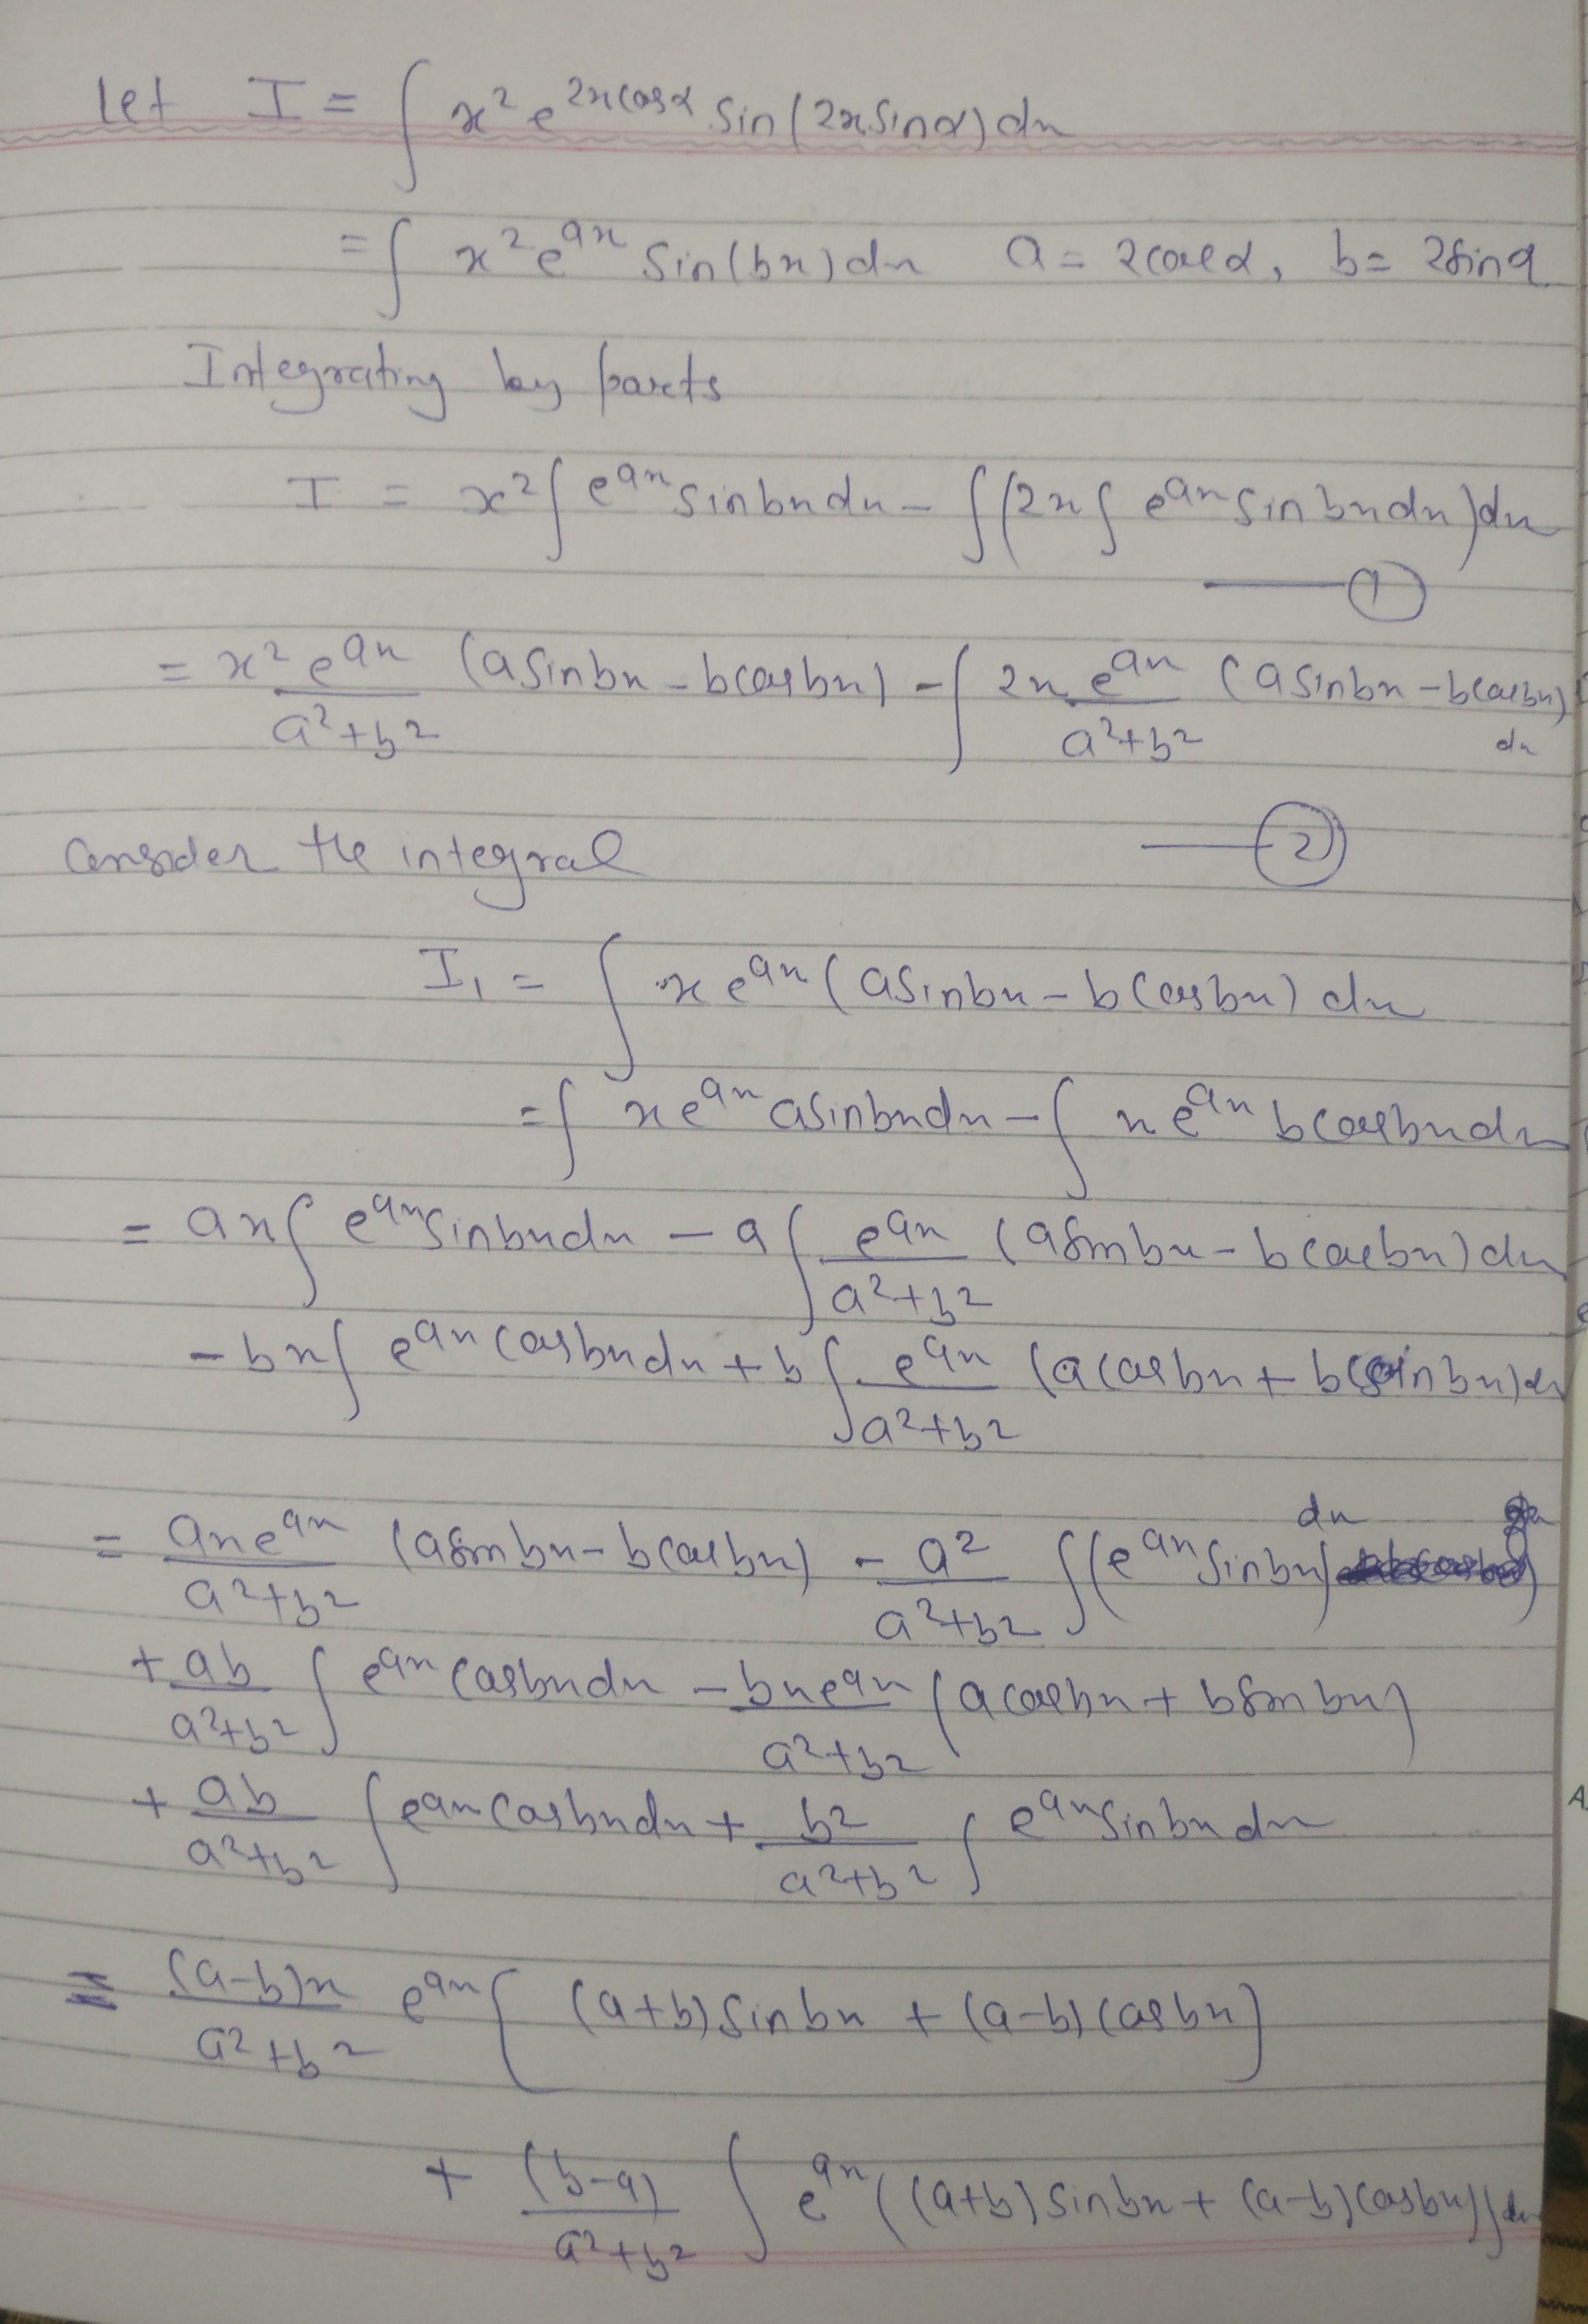 Let I = ∫ x² e^{2x cosα} sin(2x sinα) dx
= ∫ x² e^{ax} sin(bx) dx a = 2cosα, b = 2sinα
Integrating by parts
I = x² ∫ e^{ax} sinbx dx - ∫(2x ∫ e^{ax} sinbx dx) dx
—— ①
= x² e^{ax}/(a²+b²) (a sinbx - b cosbx) - ∫ 2x e^{ax}/(a²+b²) (a sinbx - b cosbx) dx
—— ②
Consider the integral
I₁ = ∫ x e^{ax} (a sinbx - b cosbx) dx
= ∫ x e^{ax} a sinbx dx - ∫ x e^{ax} b cosbx dx
= ax ∫ e^{ax} sinbx dx - a ∫ e^{ax}/(a²+b²) (a sinbx - b cosbx) dx
- bx ∫ e^{ax} cosbx dx + b ∫ e^{ax}/(a²+b²) (a cosbx + b sinbx) dx
= ax e^{ax}/(a²+b²) (a sinbx - b cosbx) - a²/(a²+b²) ∫(e^{ax} sinbx) dx
+ ab/(a²+b²) ∫ e^{ax} cosbx dx - bx e^{ax}/(a²+b²) (a cosbx + b sinbx)
+ ab/(a²+b²) ∫ e^{ax} cosbx dx + b²/(a²+b²) ∫ e^{ax} sinbx dx
= (a-b)x/(a²+b²) e^{ax} [(a+b) sinbx + (a-b) cosbx]
+ (b-a)/(a²+b²) ∫ e^{ax} ((a+b) sinbx + (a-b) cosbx)) dx